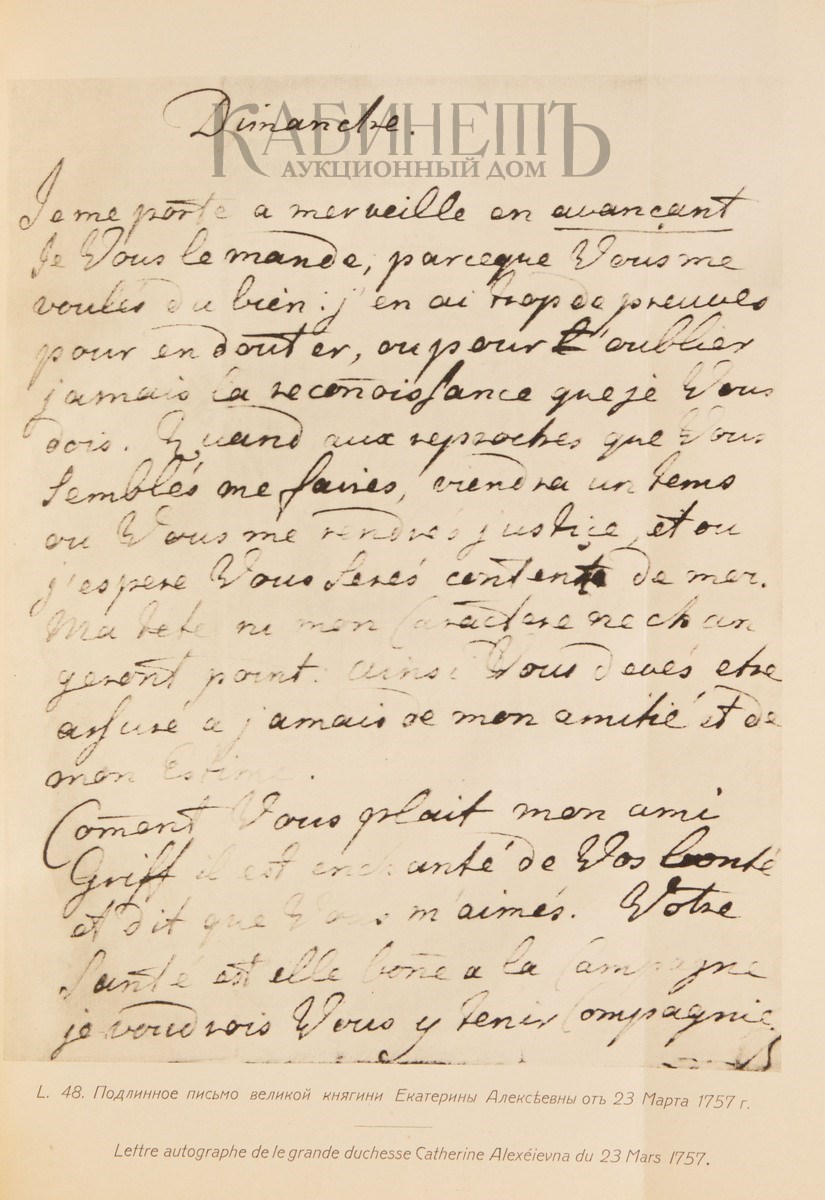 КАБИНЕТЪ
АУКЦИОННЫЙ ДОМ
Dimanche.
Je me porte a merveille en avançant
Je Vous le mande, parceque Vous me
voulés du bien: j'en ai trop de preuves
pour en douter, ou pour l'oublier
jamais la reconoissance que je Vous
dois. Quand aux reproches que Vous
Semblés me faires, viendra un tems
ou Vous me rendrés justice, et ou
j'espere Vous Serés content de moi.
Ma tete ni mon Caractere ne chan
geront point. ainsi Vous devés etre
assuré a jamais de mon amitié et de
mon Estime.
Coment Vous plait mon ami
Griff il est enchanté de Vos bonté
et dit que Vous m'aimés. Votre
Santé est elle bone a la Campagne
je voudrois Vous y tenir Compagnie
L. 48. Подлинное письмо великой княгини Екатерины Алексѣевны отъ 23 Марта 1757 г.
Lettre autographe de le grande duchesse Catherine Alexéievna du 23 Mars 1757.